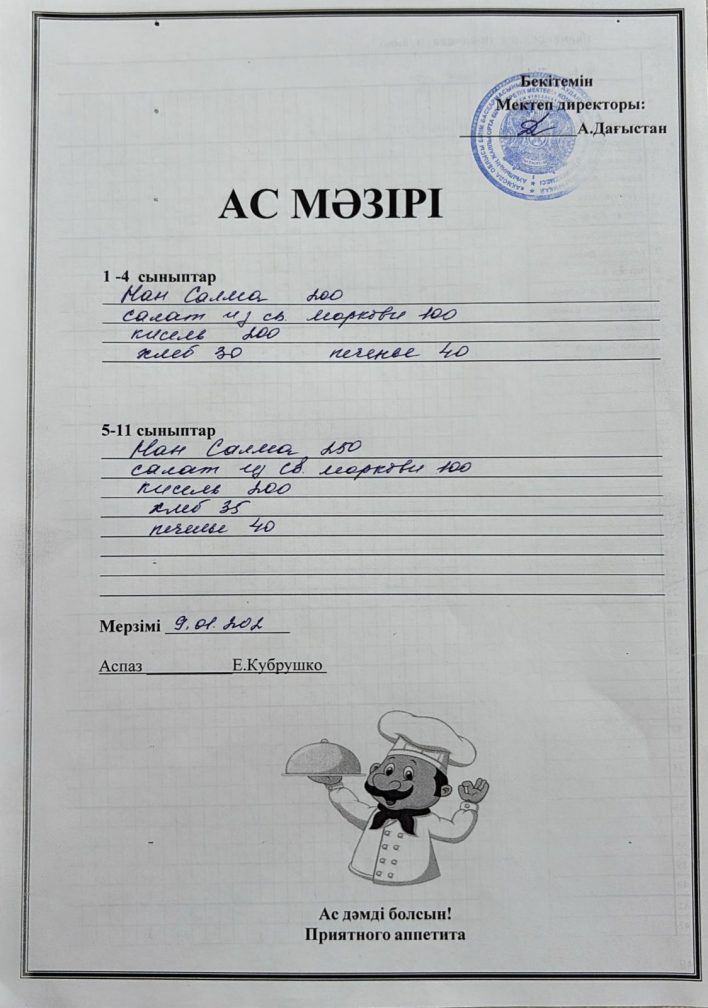 Бекітемін
Мектеп директоры:
А.Дағыстан
АС МӘЗІРІ
1 -4 сыныптар
Нан Салма 200
салат из св моркови 100
кисель 200
хлеб 30 печенье 40
5-11 сыныптар
Нан Салма 250
салат из св. моркови 100
кисель 200
хлеб 35
печенье 40
Мерзімі 9.01.202
Аспаз Е.Кубрушко
Ас дәмді болсын!
Приятного аппетита